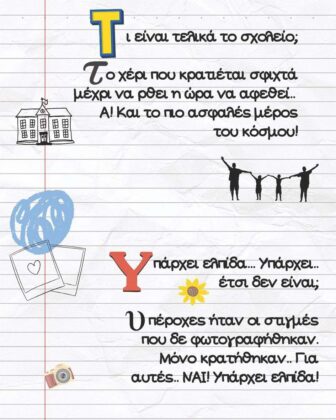 Τι είναι τελικά το σχολείο;
Το χέρι που κρατιέται σφιχτά
μέχρι να ρθει η ώρα να αφεθεί..
Α! Και το πιο ασφαλές μέρος
του κόσμου!
Υπάρχει ελπίδα... Υπάρχει..
έτσι δεν είναι;
Υπέροχες ήταν οι στιγμές
που δε φωτογραφήθηκαν.
Μόνο κρατήθηκαν.. Για
αυτές.. ΝΑΙ! Υπάρχει ελπίδα!